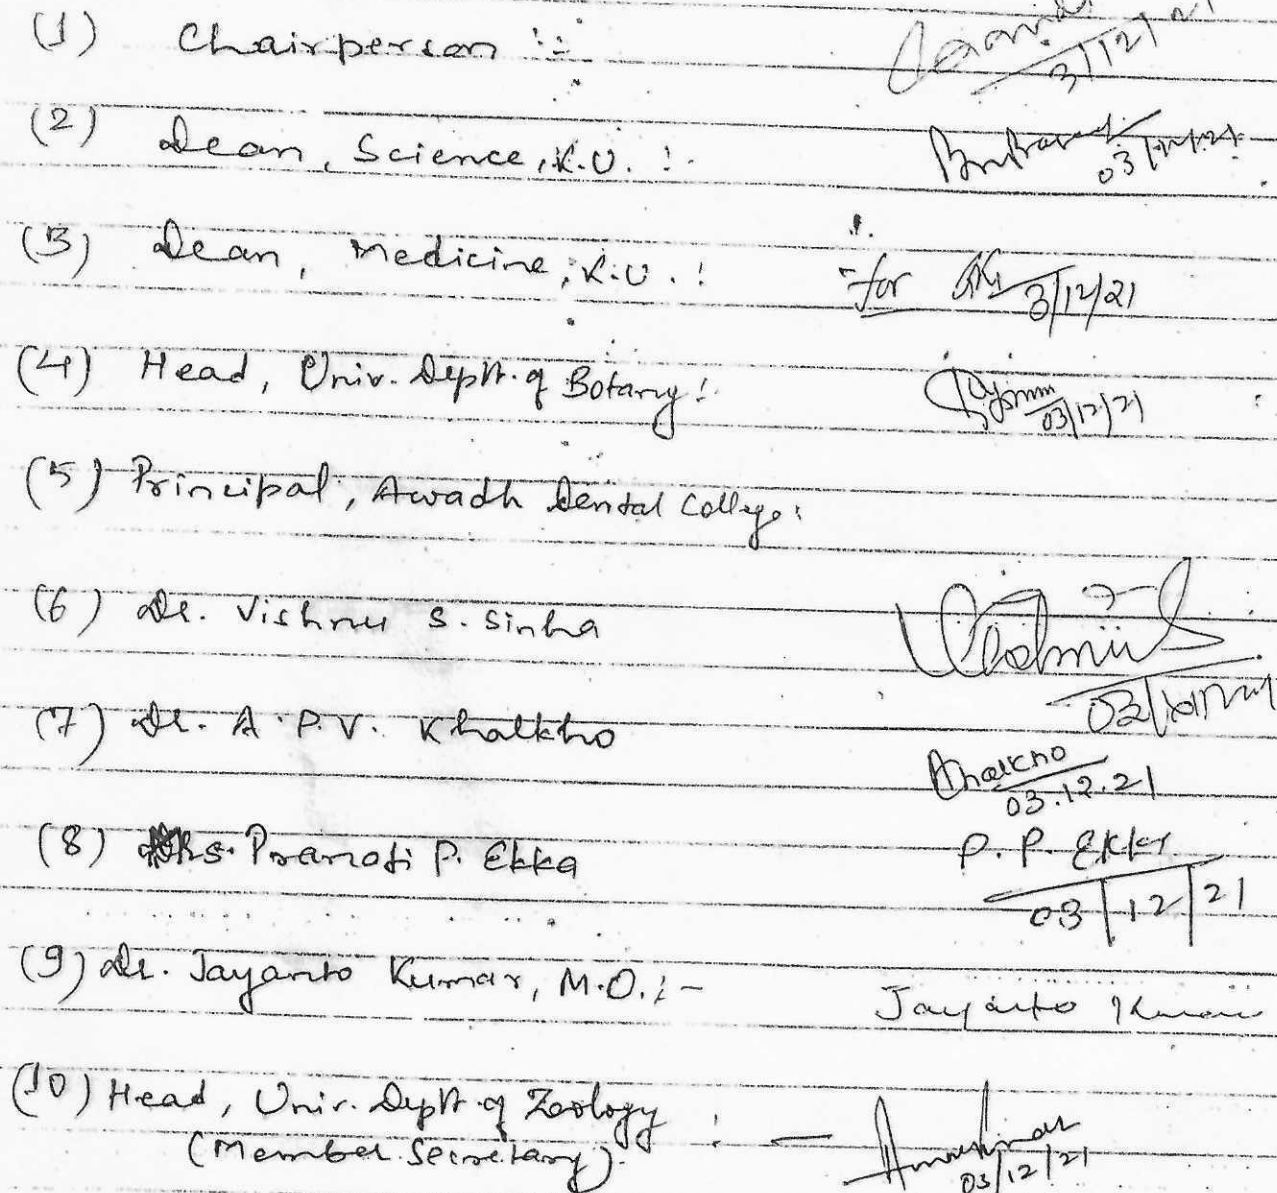 (1) Chairperson :-
3/12/21
(2) Dean, Science, K.U. :-
03/12/21
(3) Dean, Medicine, K.U. :
for 3/12/21
(4) Head, Univ. Deptt. of Botany :
03/12/21
(5) Principal, Awadh Dental College :
(6) Dr. Vishnu S. Sinha
(7) Dr. A. P. V. Khalkho
Khalkho
03.12.21
(8) Ms. Pranoti P. Ekka
P. P. Ekka
03/12/21
(9) Dr. Jayanto Kumar, M.O. :-
Jayanto Kumar
(10) Head, Univ. Deptt. of Zoology : -
(Member Secretary)
03/12/21